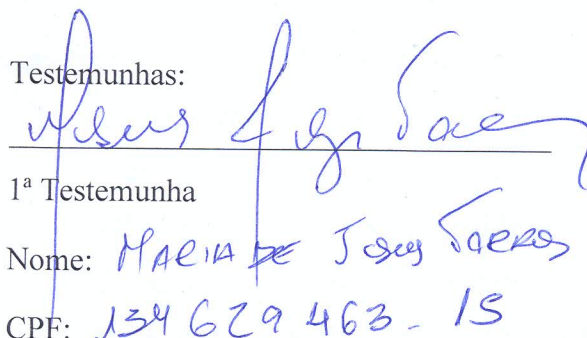 Testemunhas:
1ª Testemunha
Nome: MARIA DE Jesus
CPF: 134 629 463 - 15